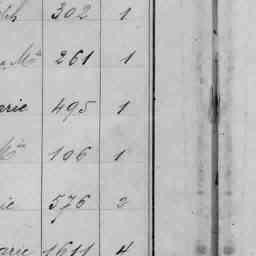 302 1
Ma 261 1
arie 495 1
Ma 106 1
ie 576 2
arie 1611 4